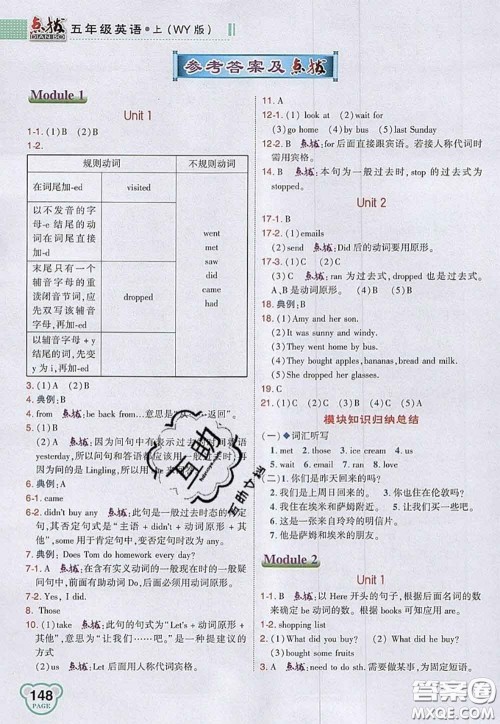 点拨 五年级英语·上(WY版)
DIAN BO
参考答案及点拨
Module 1
Unit 1
1-1. (1)B (2)B
1-2.
规则动词 不规则动词
在词尾加-ed visited
以不发音的字
母-e结尾的动
词在词尾直接
加-d
末尾只有一个
辅音字母的重
读闭音节词,应
先双写该辅音
字母,再加-ed
dropped
以辅音字母+y
结尾的词,先变
y为i,再加-ed
went
met
saw
did
came
had
3. (1)A (2)B
4. 典例:B
4. from 点拨:be back from...意思是“从……返回”。
5. B 点拨:因为问句中有表示过去的时间状语
yesterday,所以问句和答语
的是Lingling,所以
6-1. came
6-2. didn't buy any 点拨:一般过去时态的
其否定句式是“主语+didn't+动词原形+其
他”,some用于肯定句中,否定句中变为any。
7. 典例:Does Tom do homework every day?
点拨:在含有实义动词的一般现在时的一般
疑问句中,前面有助动词Do,后面动词用原形。
7-2. Yes, I did.
8. Those
9. (1)take 点拨:句式为“Let's+动词原形+其
他”,意思是“让我们……吧”。是一种提建议的
方式
(2)us 点拨:Let后面用人称代词宾格。
148
PAGE
11. A
12-1. (1)look at (2)wait for
(3)go home (4)by bus (5)last Sunday
12-2. B 点拨:for后面直接跟宾语。若接人称代词时
需用宾格。
13. A 点拨:本句为一般过去时,stop的过去式为
stopped。
Unit 2
17-1. B
17-2. (1)emails
(2)send 点拨:Did后的动词要用原形。
17-3. (1)C 点拨:ran为过去式,dropped也是过去式。
A、B是动词原形。 (2)C
18. 典例:B
19. (1)Amy and her son.
(2)It was sunny and windy.
(3)They went home by bus.
(4)They bought apples,bananas, bread and milk.
(5)She dropped her glasses.
20. B
21. (1)C (2)A (3)B (4)B (5)C
模块知识归纳总结
(一)◆词汇听写
1. met 2. those 3. ice cream 4. us
5. wait 6. email 7. ran 8. finish
(二)1. 你们是昨天回来的吗?
2. 我们是上周日回来的。 3. 你也住在伦敦吗?
4. 我和埃米与萨姆 5. 我们回家吧。
6. 这是一张来自玲玲的明信片。
7. 他是萨姆和埃米的朋友。
Module 2
Unit 1
1-1. B 点拨:以Here开头的句子,根据后面名词的数
来确定be动词的数。根据books可知应用are。
1-2. shopping list
2. (1)What did you buy? (2)What do you need?
(3)bought some fruits
3. (1)A 点拨:need to do sth.需要做某事,固定短语。
互助
互助文档
答案圈
MXQE.COM